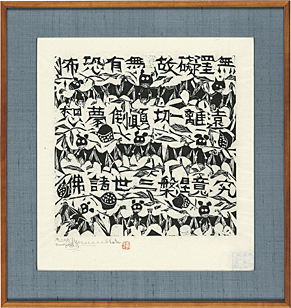 無罣礙故無有恐怖
遠離一切顛倒夢想
究竟涅槃三世諸佛